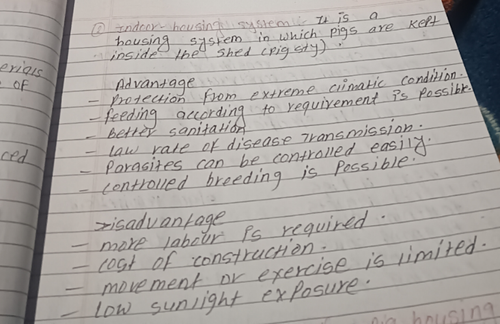 ① Indoor housing system :- It is a
housing system in which pigs are kept
inside the shed (pigsty).
Advantage
- protection from extreme climatic condition.
- feeding according to requirement is possible.
- better sanitation
- law rate of disease transmission.
- parasites can be controlled easily.
- controlled breeding is possible.
Disadvantage
- more labour is required.
- cost of construction.
- movement or exercise is limited.
- low sunlight exposure.
erials
OF
ced
housing